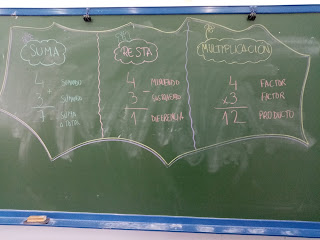 SUMA
4 SUMANDO
3 + SUMANDO
7 SUMA
O TOTAL
RESTA
4 MINUENDO
3 - SUSTRAENDO
1 DIFERENCIA
MULTIPLICACIÓN
4 FACTOR
x3 FACTOR
12 PRODUCTO